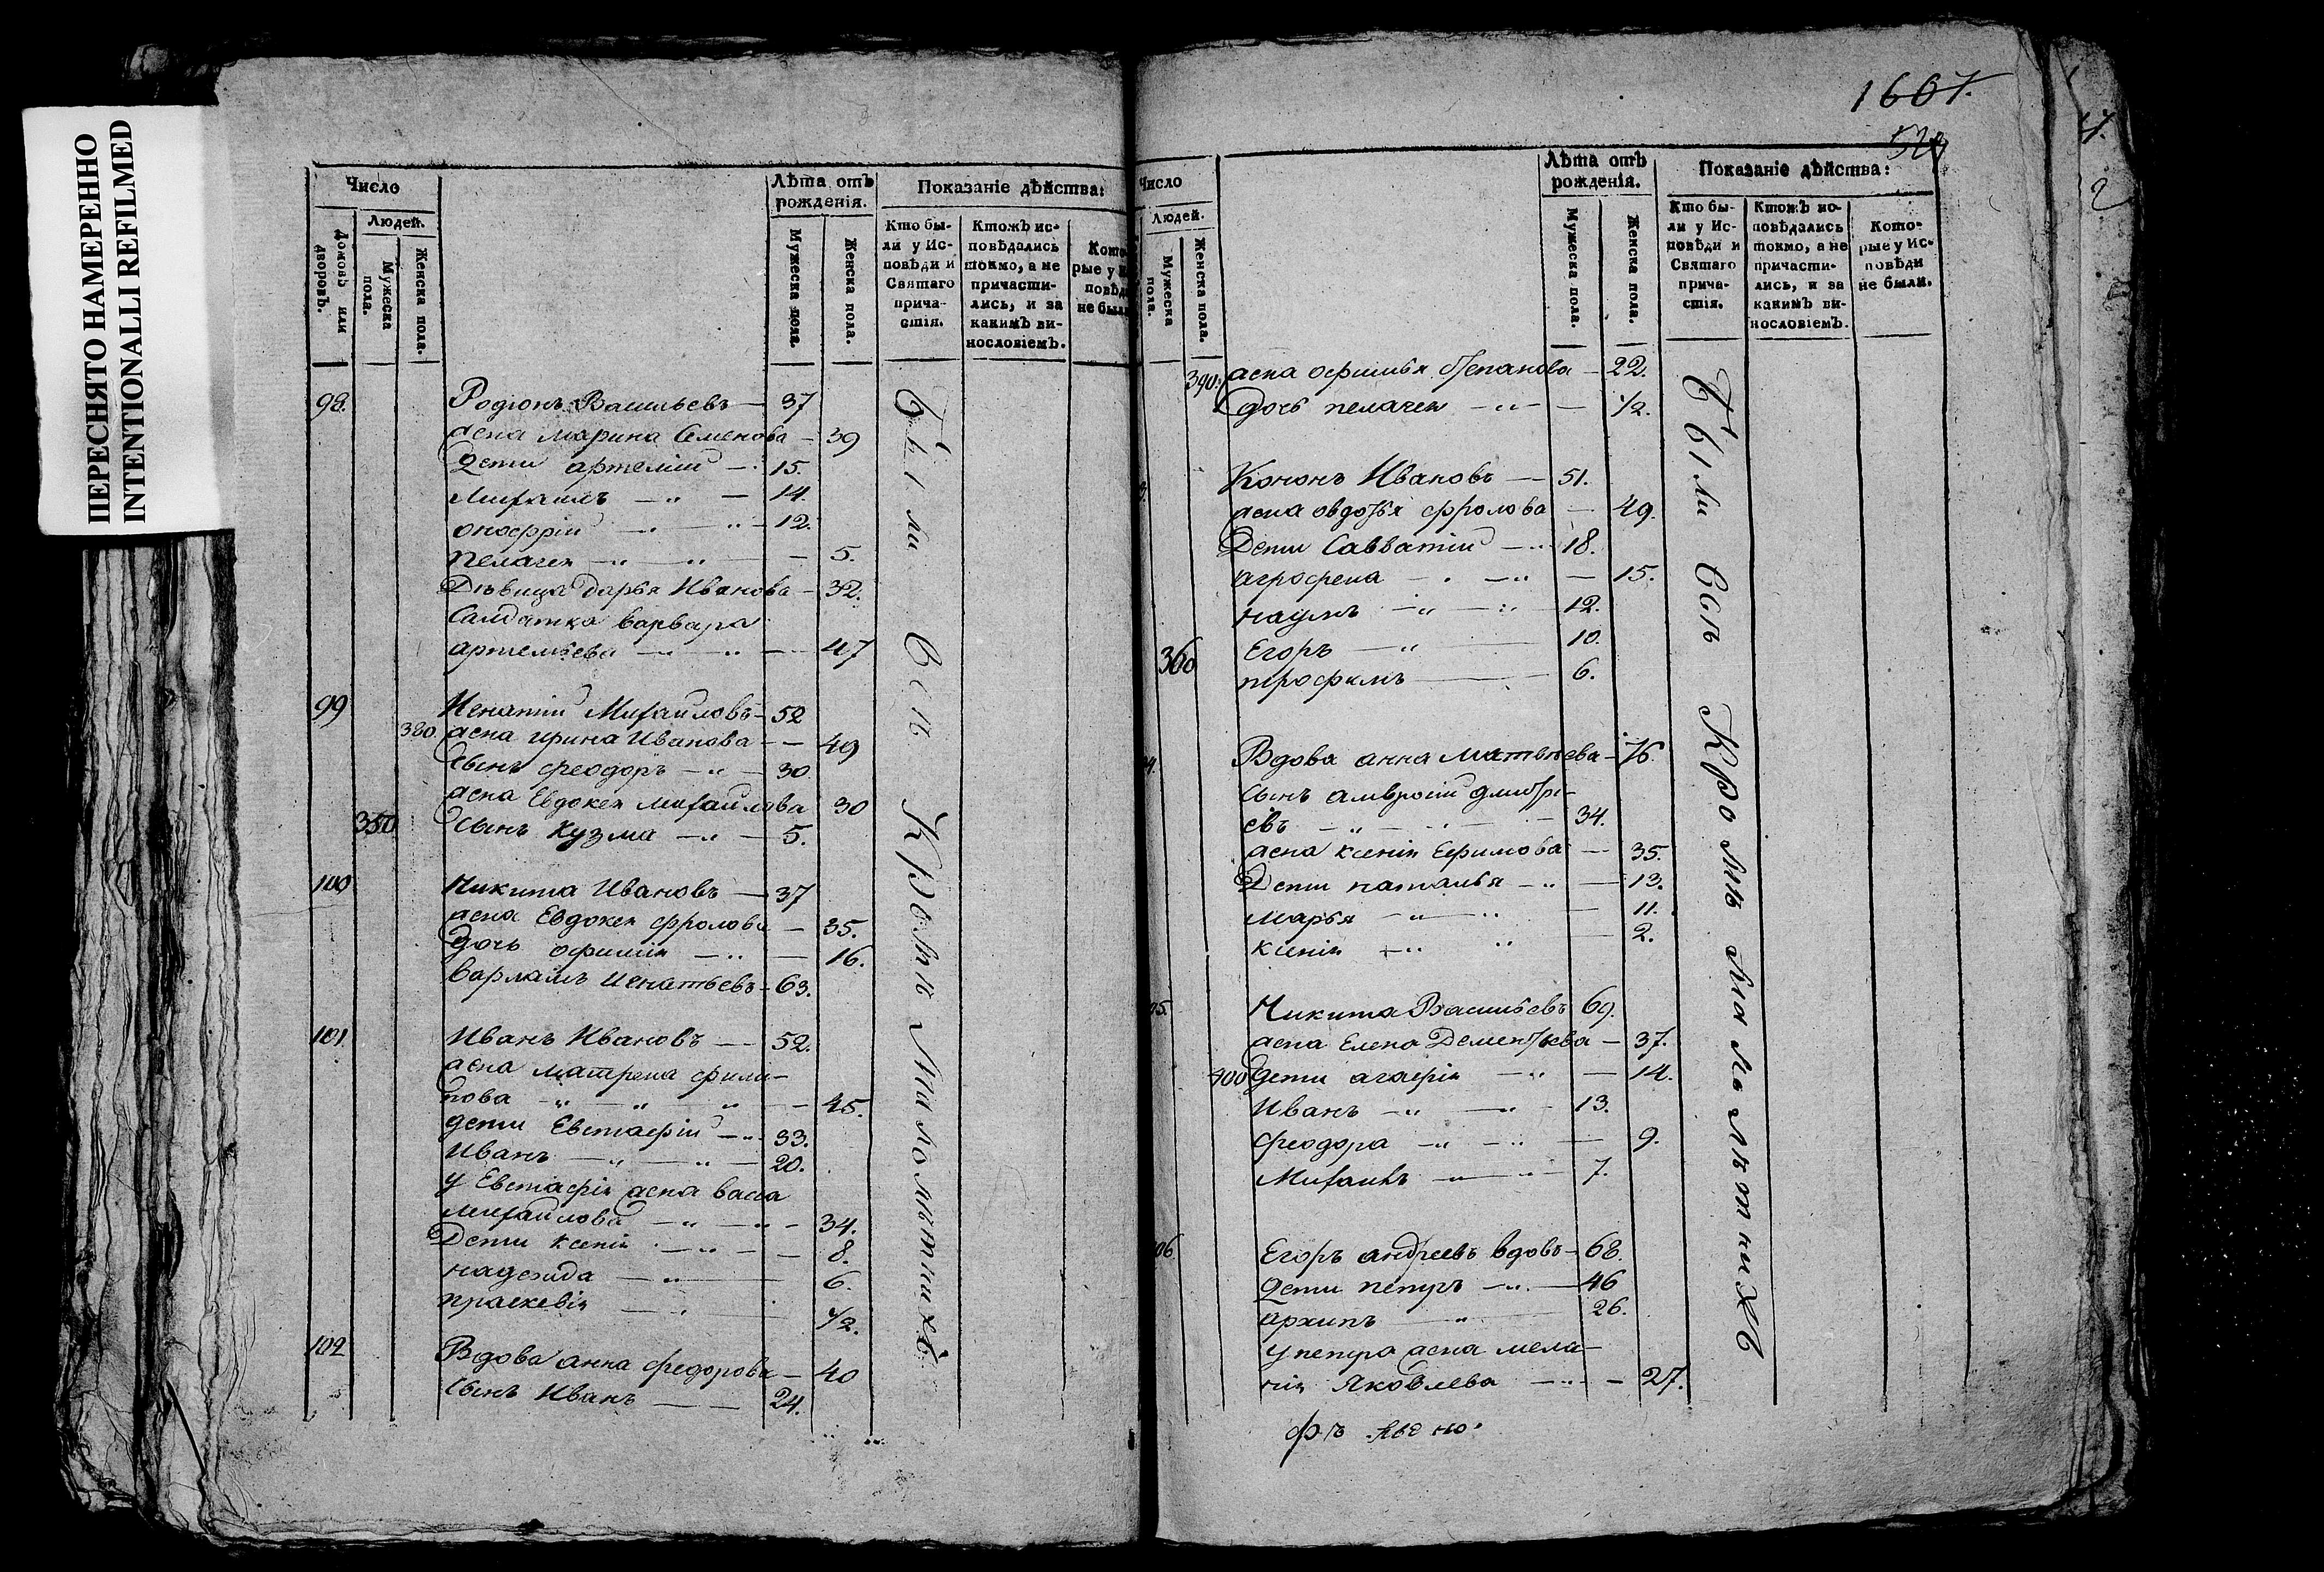 ПЕРЕСНЯТО НАМЕРЕННО
INTENTIONALLI REFILMED
Число
Людей.
Домовъ или дворовъ.
Мужеска пола.
Женска пола.
Лѣта отъ рожденія.
Мужеска пола.
Женска пола.
Показаніе дѣйства:
Кто бы-
ли у Ис-
повѣди и
Святаго
прича-
стія.
Ктожъ ис-
повѣдались
токмо, а не
причасти-
лись, и за
какимъ ви-
нословіемъ.
Кото
рые у И
повѣд
не были
98. Родіонъ Васильевъ — 37
жена марина Семенова — 39
Дети артемій — 15.
Михаилъ — 14.
оноѳрій — 12.
пелагея — 5.
Дѣвица Дарья Иванова — 32.
Салдатка варвара
артемьева — 47
99 Игнатій Михайловъ — 52
380. жена ирина Иванова — 49
сынъ ѳеодоръ — 30
жена Евдокея михайлова 30
350 сынъ Кузма — 5.
100 Никита Ивановъ — 37
жена Евдокея фролова — 35.
дочь офимія — 16.
варламъ игнатьевъ — 63.
101 Иванъ Ивановъ — 52.
жена матрена фили-
пова — 45.
дети Евстафій — 33.
Иванъ — 20.
у Евстафія жена васса
михайлова — 34.
Дети ксенія — 8.
надежда — 6.
праскевія — 1/2.
102 Вдова анна федорова — 40
сынъ Иванъ — 24.
Были Всѣ Кромѣ Малолѣтнихъ
1667.
Число
Людей.
Мужеска пола.
Женска пола.
Лѣта отъ рожденія.
Мужеска пола.
Женска пола.
Показаніе дѣйства:
Кто бы-
ли у Ис-
повѣди и
Святаго
прича-
стія.
Ктожъ ис-
повѣдались
токмо, а не
причасти-
лись, и за
какимъ ви-
нословіемъ.
Кото-
рые у Ис-
повѣди
не были.
390. жена офимья степанова — 22.
дочь пелагея — 1/2.
Кононъ Ивановъ — 51.
жена овдотья фролова — 49.
Дети Савватій — 18.
агрофена — 15.
наумъ — 12.
Егоръ — 10.
360 трофимъ — 6.
Вдова анна Матвѣева — 76.
сынъ амвросій дмитрі-
евъ — 34.
жена ксенія Ефимова — 35.
Дети наталья — 13.
марья — 11.
ксенія — 2.
05. Никита Васильевъ 69.
жена Елена Дементьева — 37.
400 дети агафія — 14.
Иванъ — 13.
феодора — 9.
Михаилъ — 7.
06 Егоръ андреевъ вдовъ — 68.
Дети петръ — 46
архипъ — 26.
у петра жена мела-
нія Яковлева — 27.
Были Всѣ Кромѣ Малолѣтнихъ